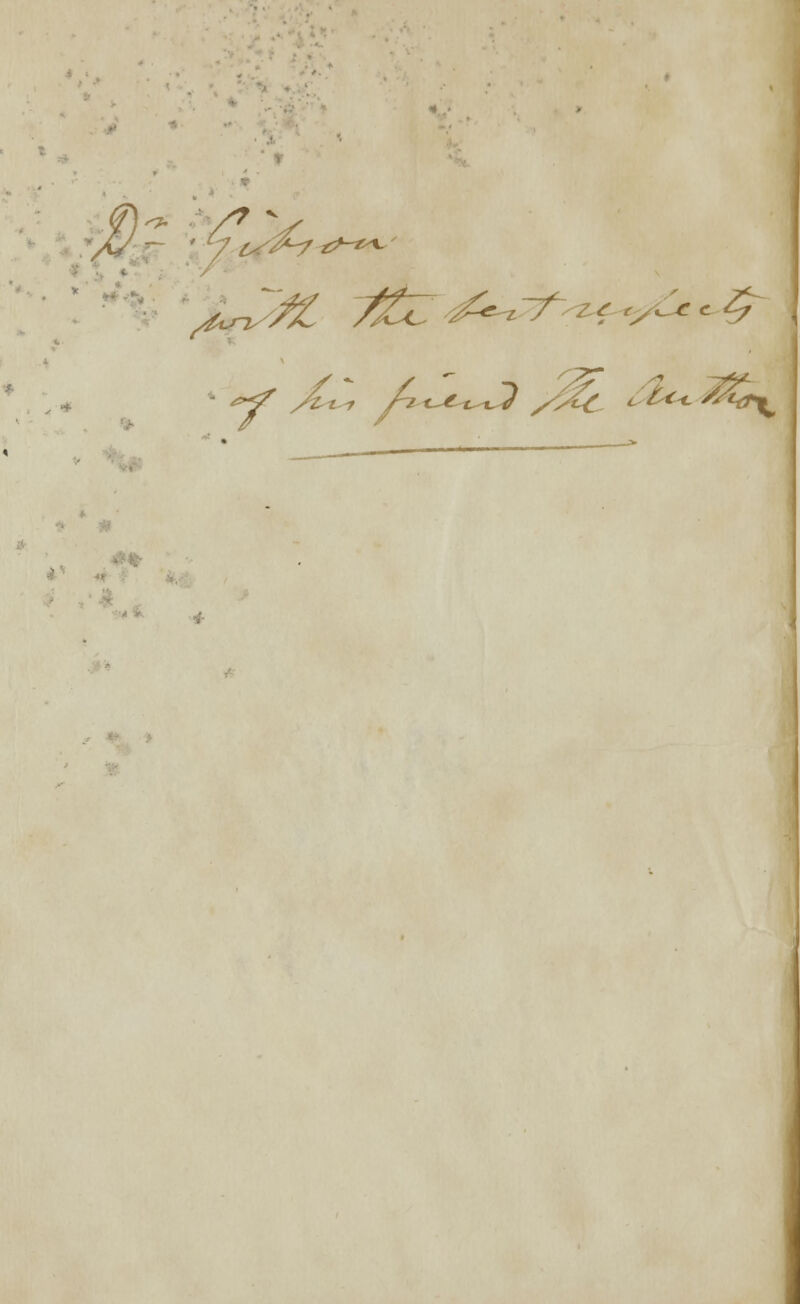 Dr Gibson
with the best respects
of his friend The Author